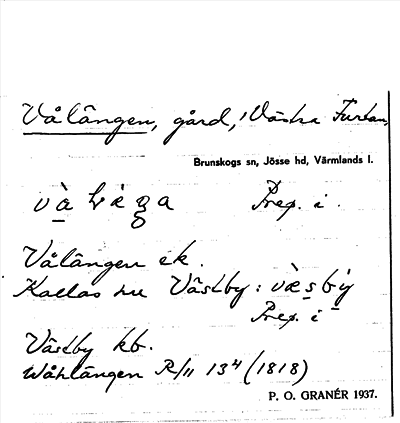 Vålängen, gård, Västra Furtan,
Brunskogs sn, Jösse hd, Värmlands l.
Prep. i.
Vålängen ek.
Kallas nu Västby: væsby
Prep. i
Västby kb.
Wåhlängen R/11 134 (1818)
P. O. GRANÉR 1937.